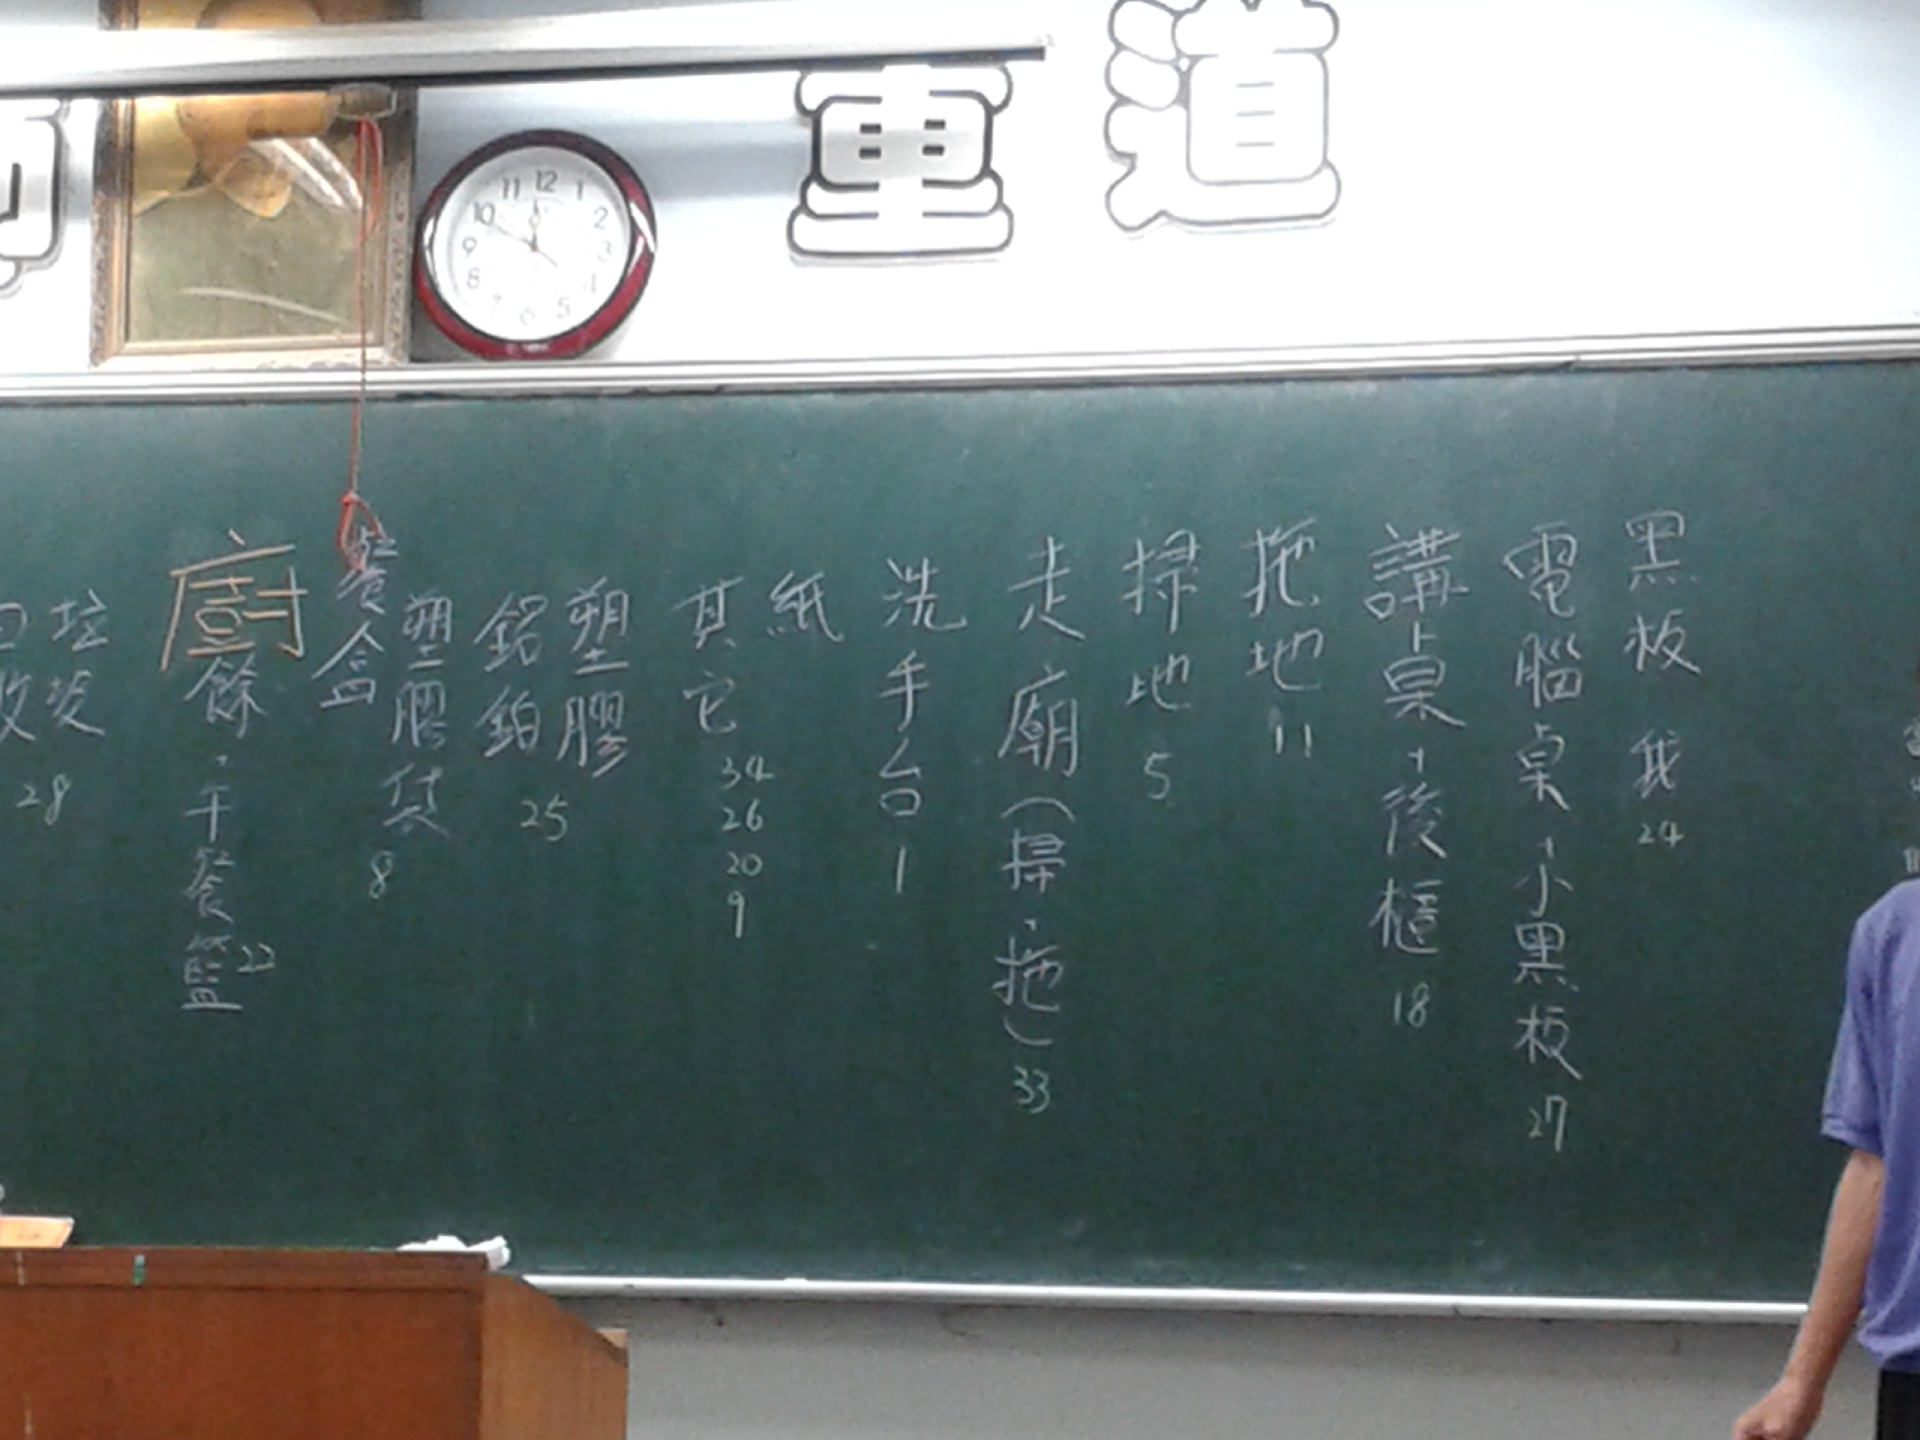 重道
12
1
2
3
4
5
6
7
8
9
10
11
黑板 我 24
電腦桌、小黑板 27
講桌、後櫃 18
拖地 11
掃地 5
走廟(掃、拖) 33
洗手台 1
紙
其它 34 26 20 9
塑膠
鋁鉑 25
塑膠袋 8
餐盒
廚餘、午餐籃 22
垃圾
回收 28